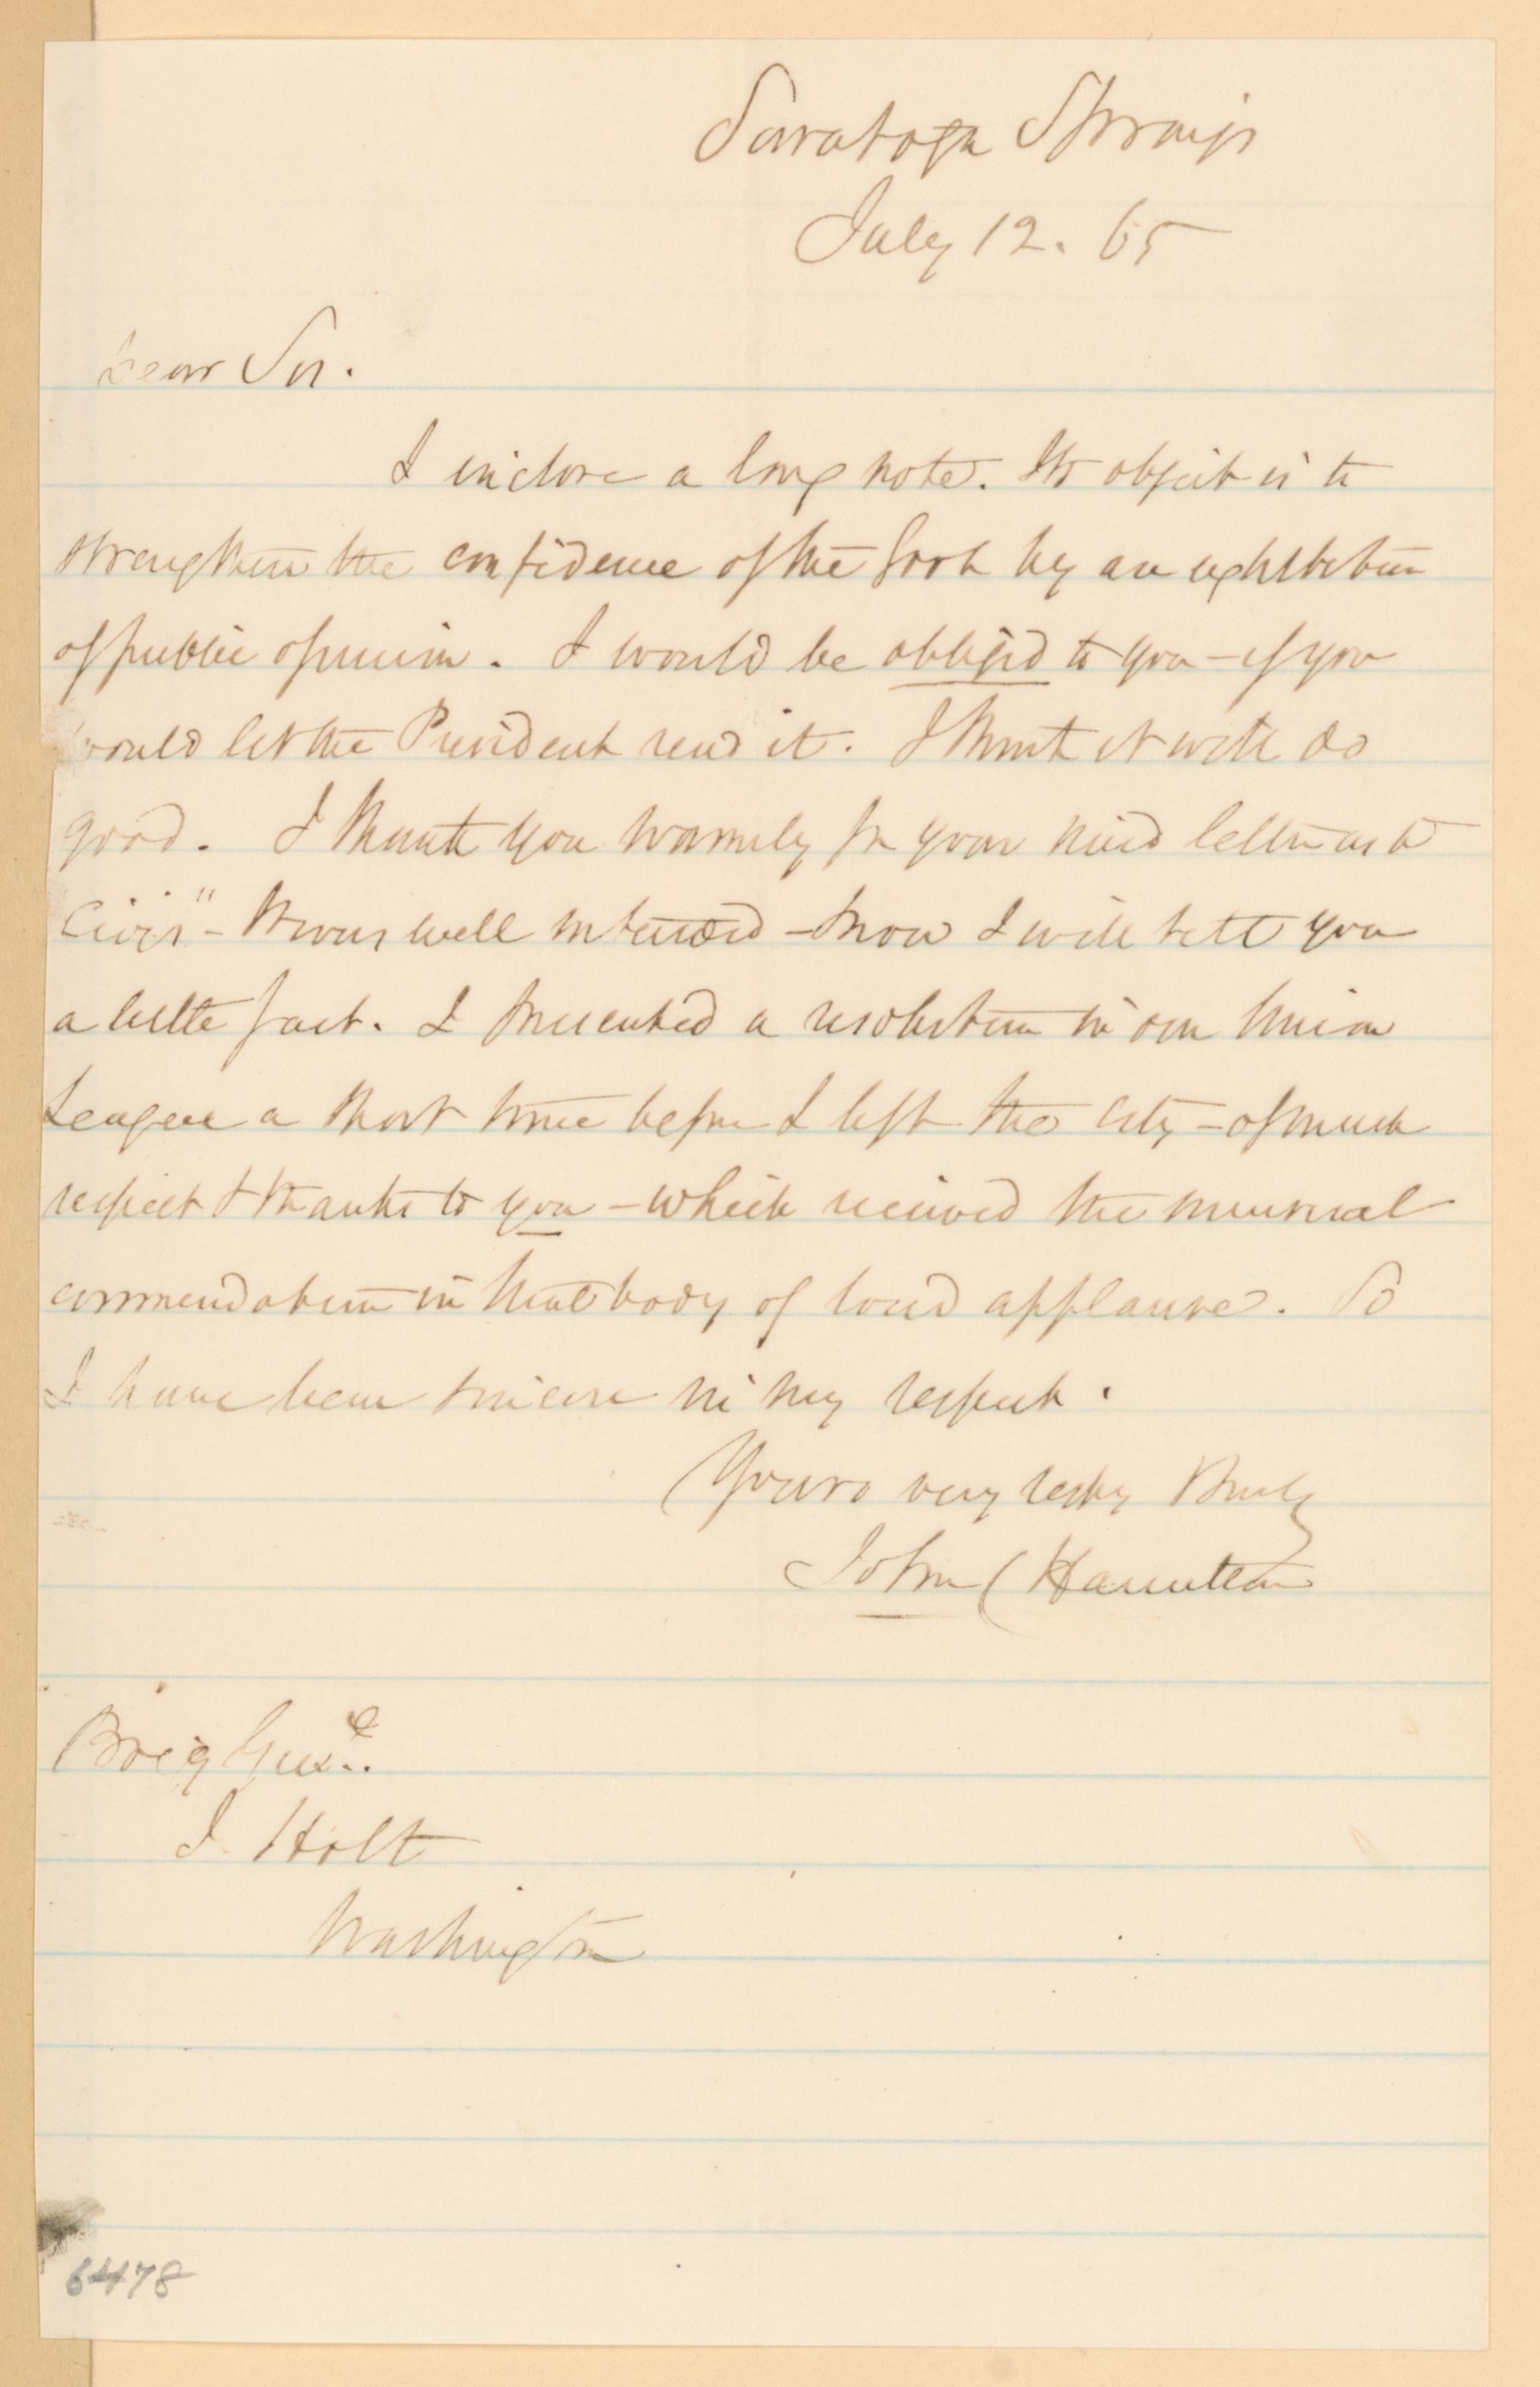 Saratoga Springs
July 12. 65
Dear Sir.
I inclose a long note. Its object is to
strengthen the confidence of the Govt by an exhibition
of public opinion. I would be obliged to you - if you
would let the President read it. I think it will do
good. I thank you warmly for your kind letter as to
Civis" - It was well intended - Now I will tell you
a little fact. I presented a resolution in our Union
League a short time before I left the City - of much
respect & thanks to you - which received the unusual
commendation in that body of loud applause. So
I have been sincere in my respect.
Yours very resply Truly
John C Hamilton
Brig Genl.
J. Holt
Washington
6478